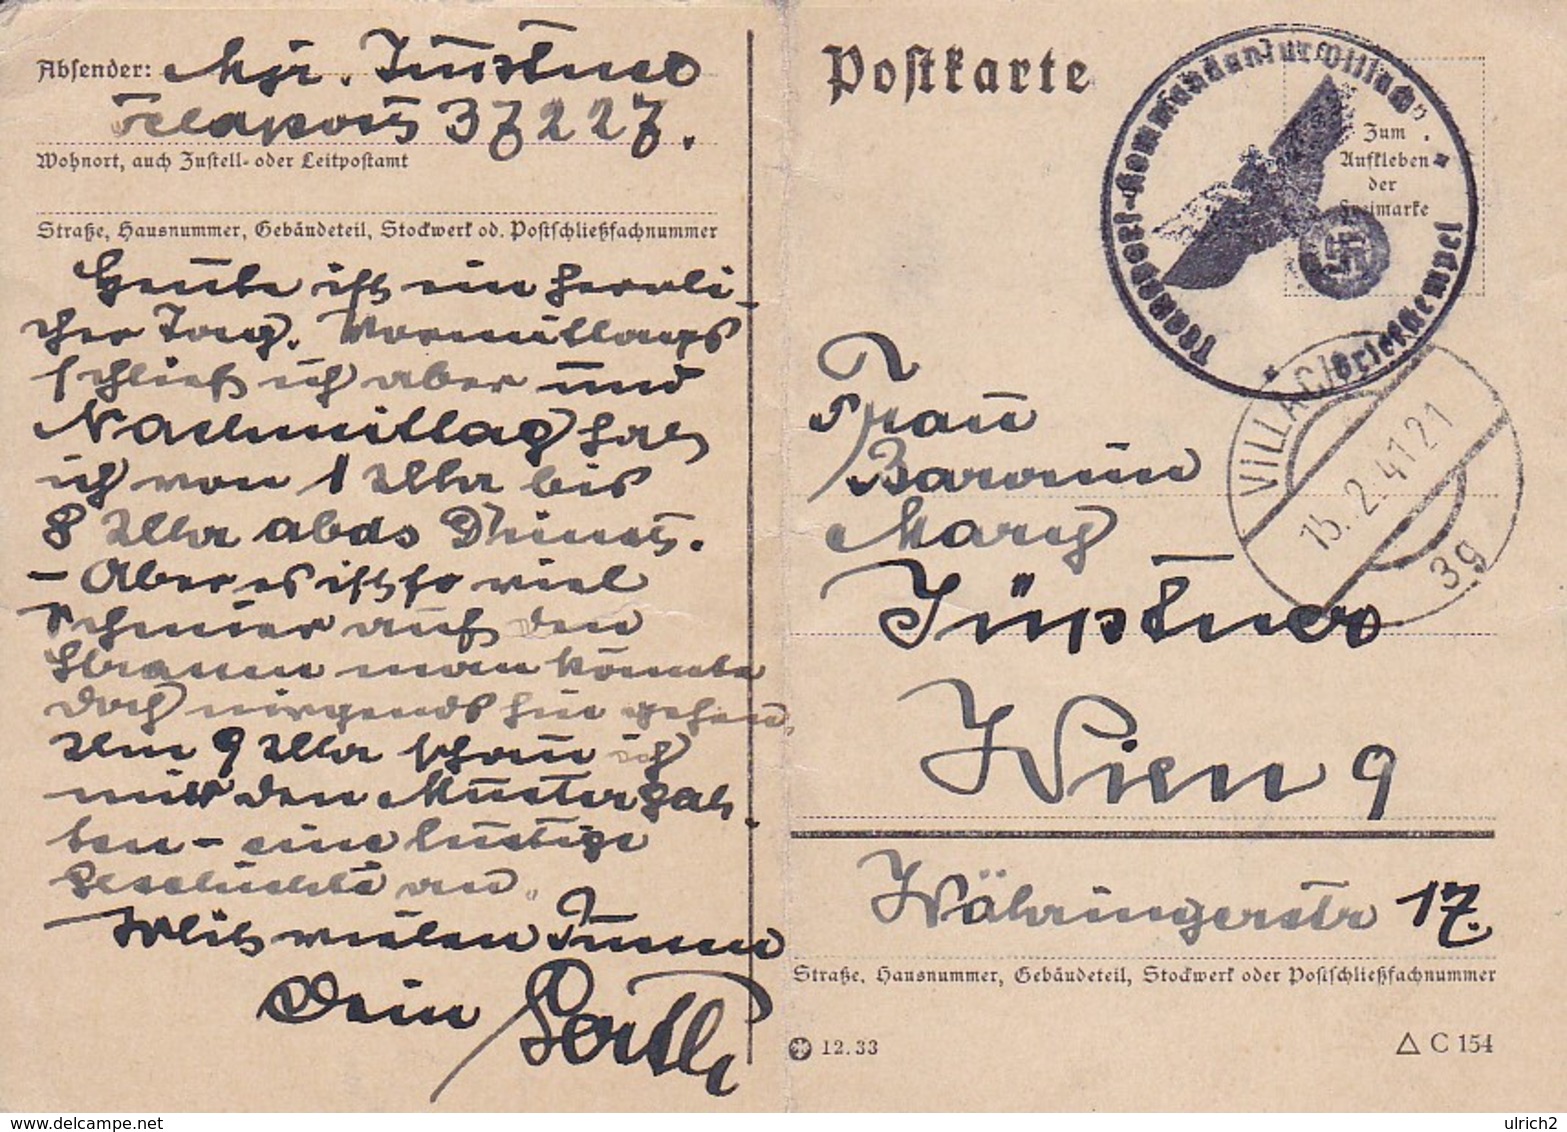 Absender: Mjr. Jüstner
Feldpost 37227.
Wohnort, auch Zustell- oder Leitpostamt
Straße, Hausnummer, Gebäudeteil, Stockwerk od. Postschließfachnummer
Heute ist ein herrli-
cher Tag. Vormittags
schlief ich aber und
Nachmittag hab
ich von 1 Uhr bis
8 Uhr abds Dienst.
– Aber es ist so viel
auf den
man könnte
doch nirgends hin gehen.
Um 9 Uhr schau ich
mir den Mustergat-
ten – eine lustige
Geschichte an.
Mit vielen
Dein
Postkarte
Transport-Kommandantur Villach
Briefstempel
Zum
Aufkleben
der
Freimarke
VILLACH
15.2.41 21
3g
Frau
Baronin
Mary
Jüptner
Wien 9
Währingerstr 17.
Straße, Hausnummer, Gebäudeteil, Stockwerk oder Postschließfachnummer
12.33
C 154
© ulrich2